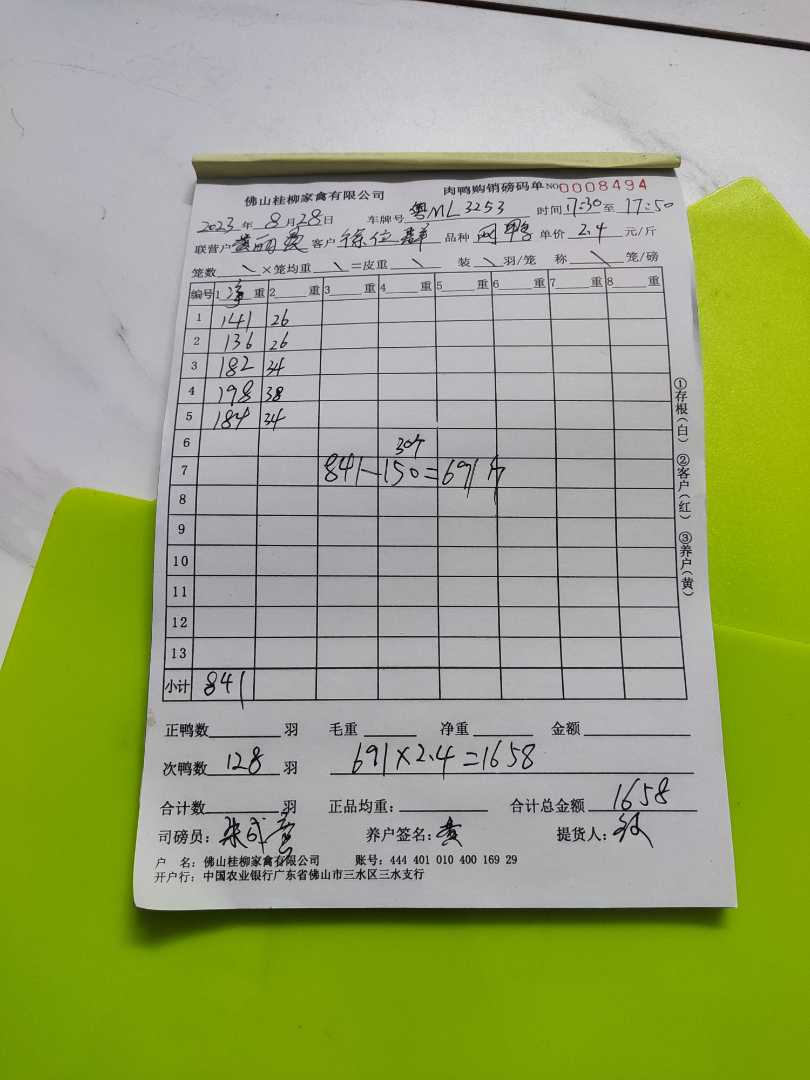 佛山桂柳家禽有限公司 肉鸭购销磅码单 NO 0008494
2023年8月28日 车牌号 粤ML3253 时间 17:30 至 17:50
联营户 客户 徐位群 品种 单价 2.4 元/斤
笼数 \ ×笼均重 \ =皮重 \ 装 \ 羽/笼 称 \ 笼/磅
编号 1 净 重 2 重 3 重 4 重 5 重 6 重 7 重 8 重
1 141 26
2 136 26
3 182 34
4 198 38
5 184 34
6 30个
7 841-150=691斤
8
9
10
11
12
13
小计 841
正鸭数 羽 毛重 净重 金额
次鸭数 128 羽 691×2.4=1658
合计数 羽 正品均重: 合计总金额 1658
司磅员: 养户签名: 黄 提货人:
户 名: 佛山桂柳家禽有限公司 账号: 444 401 010 400 169 29
开户行: 中国农业银行广东省佛山市三水区三水支行
①存根(白) ②客户(红) ③养户(黄)